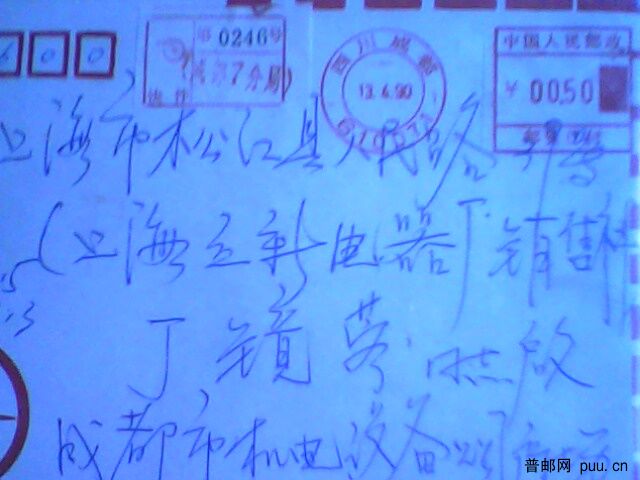 600
第0246号
成都7分局
四川成都
13.4.90
610071
中国人民邮政
¥ 00.50
上海市松江县人民路
(上海立新电器厂销售科
丁镜 同志启
成都市机电设备公司
普邮网 puu.cn